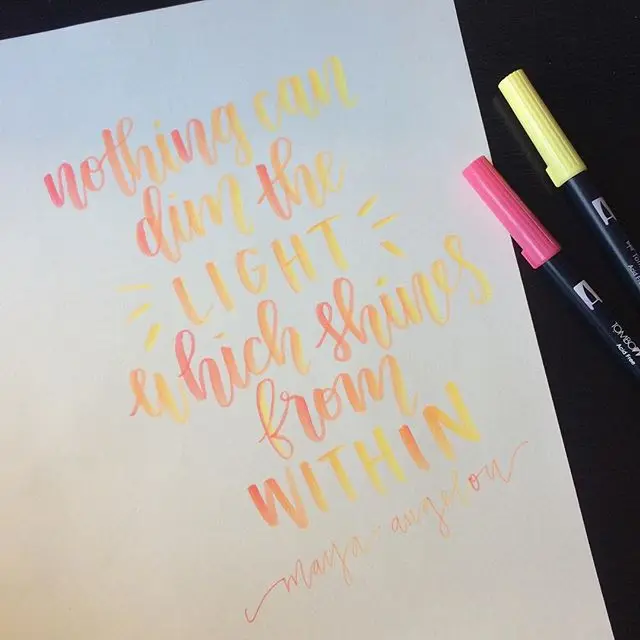 nothing can
dim the
LIGHT
which shines
from
WITHIN
maya angelou
TOMBOW
Acid Free